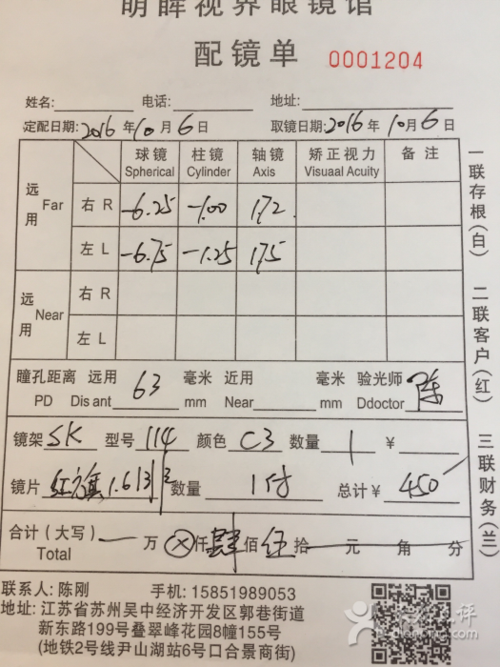 明眸视界眼镜馆
配镜单 0001204
姓名: 电话: 地址:
定配日期: 2016 年 10 月 6 日 取镜日期: 2016 年 10 月 6 日
球镜 柱镜 轴镜 矫正视力 备注
Spherical Cylinder Axis Visuaal Acuity
远用 Far 右 R -6.25 -1.00 172
左 L -6.75 -1.25 175
远用 Near 右 R
左 L
瞳孔距离 远用 63 毫米 近用 毫米 验光师 陈
PD Dis ant mm Near mm Ddoctor
镜架 SK 型号 114 颜色 C3 数量 1 ¥
镜片 红旗 1.613 数量 1付 总计¥ 450
合计(大写) 万 ⊗ 仟 肆 佰 伍 拾 元 角 分
Total
联系人: 陈刚 手机: 15851989053
地址: 江苏省苏州吴中经济开发区郭巷街道
新东路199号叠翠峰花园8幢155号
(地铁2号线尹山湖站6号口合景商街)
一联存根(白) 二联客户(红) 三联财务(兰)